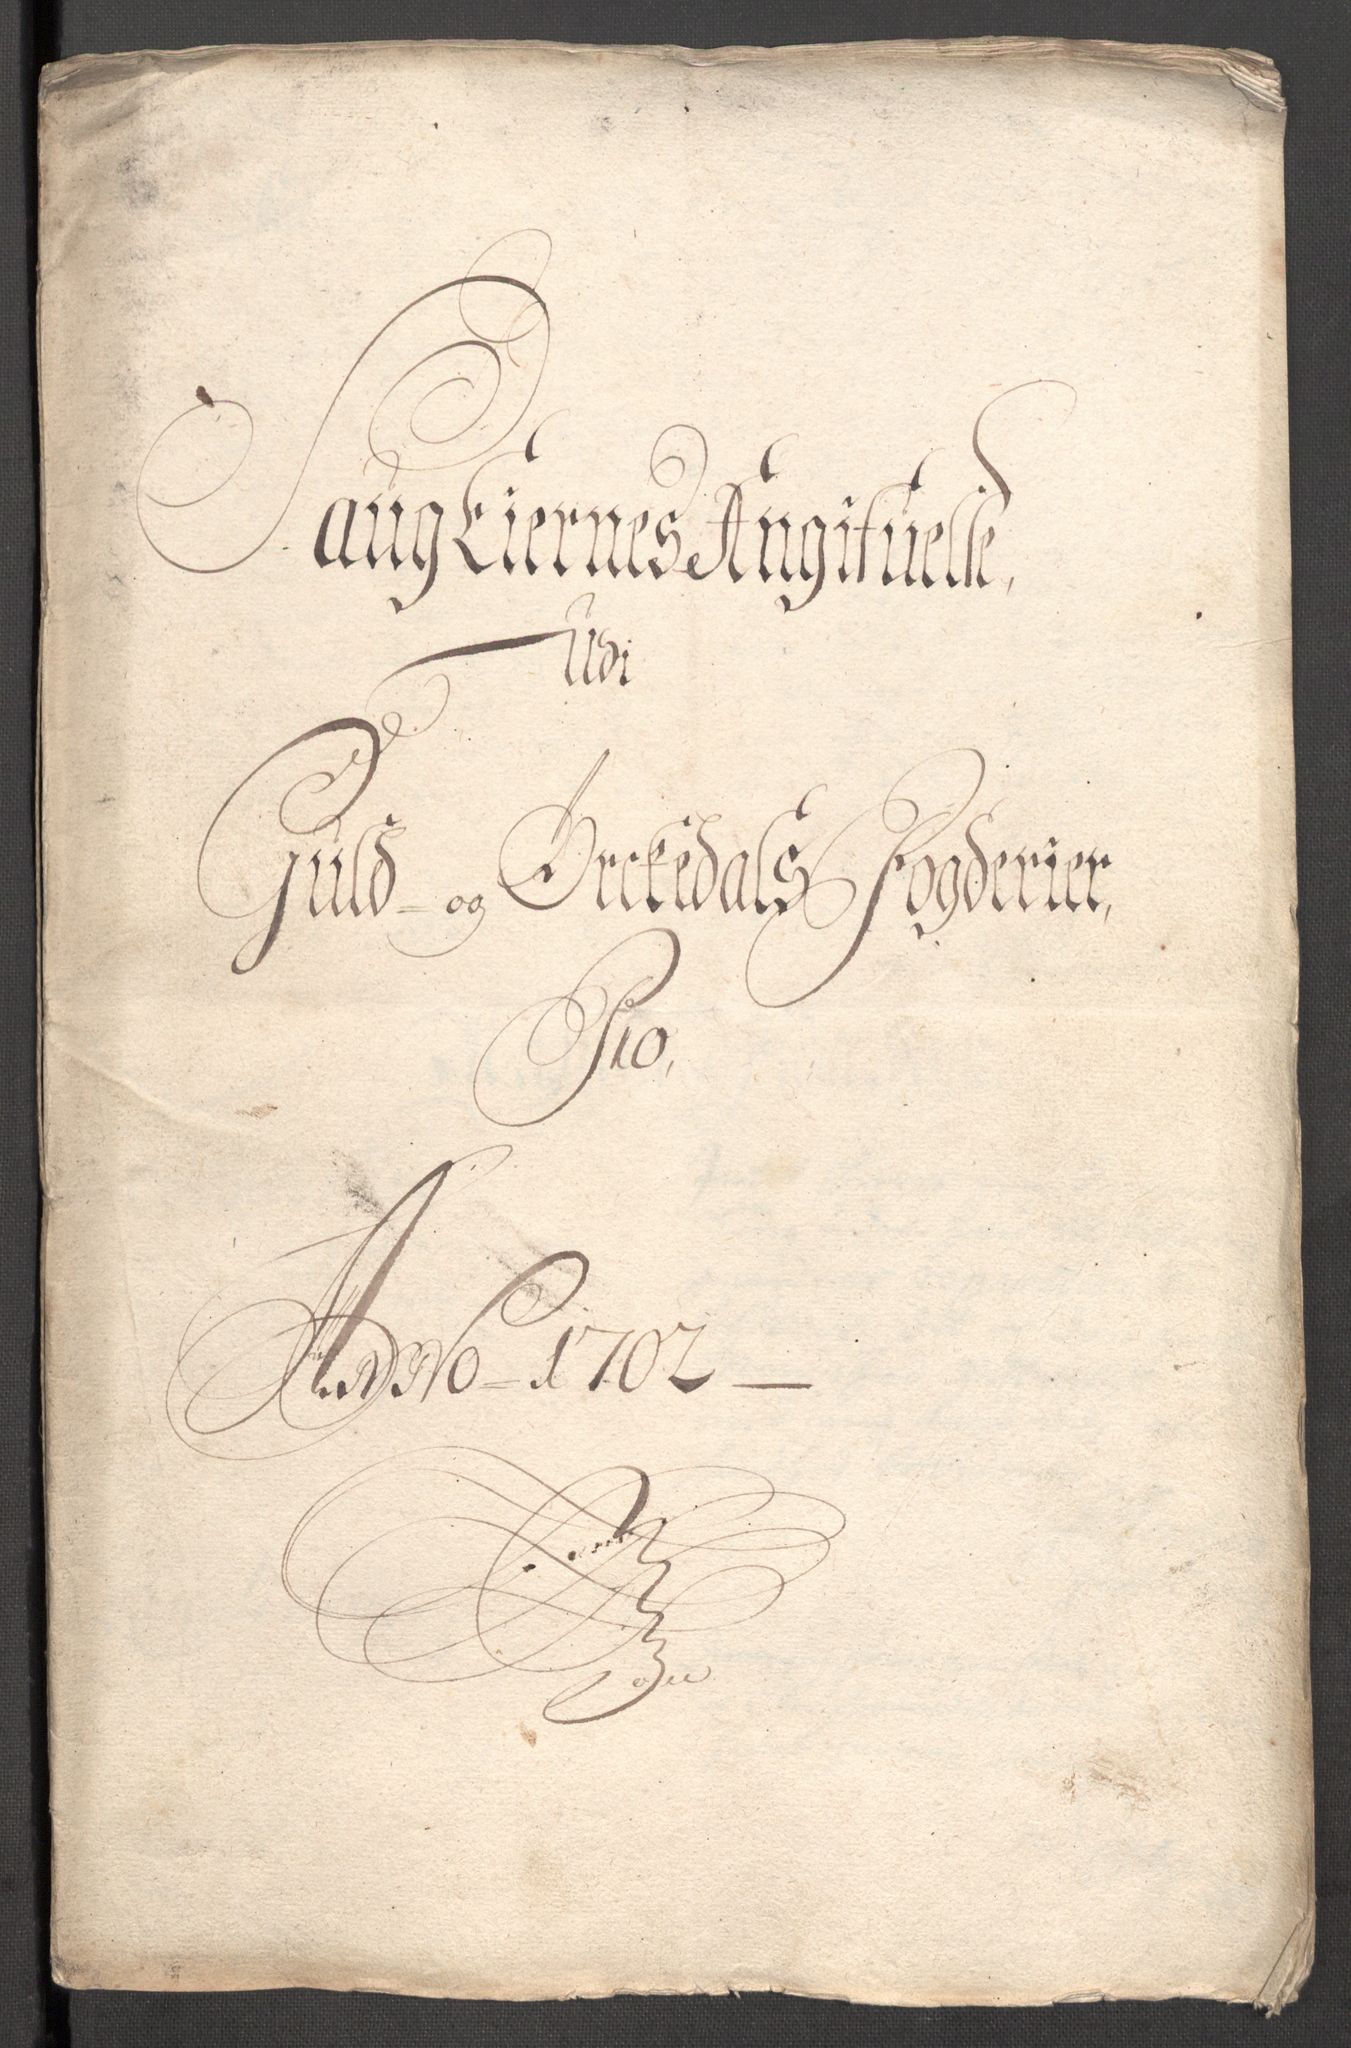 Saug Eiernes Angifuelse,
Udi
Guld- og Orckedals Fogderier,
Pro,
Anno 1702